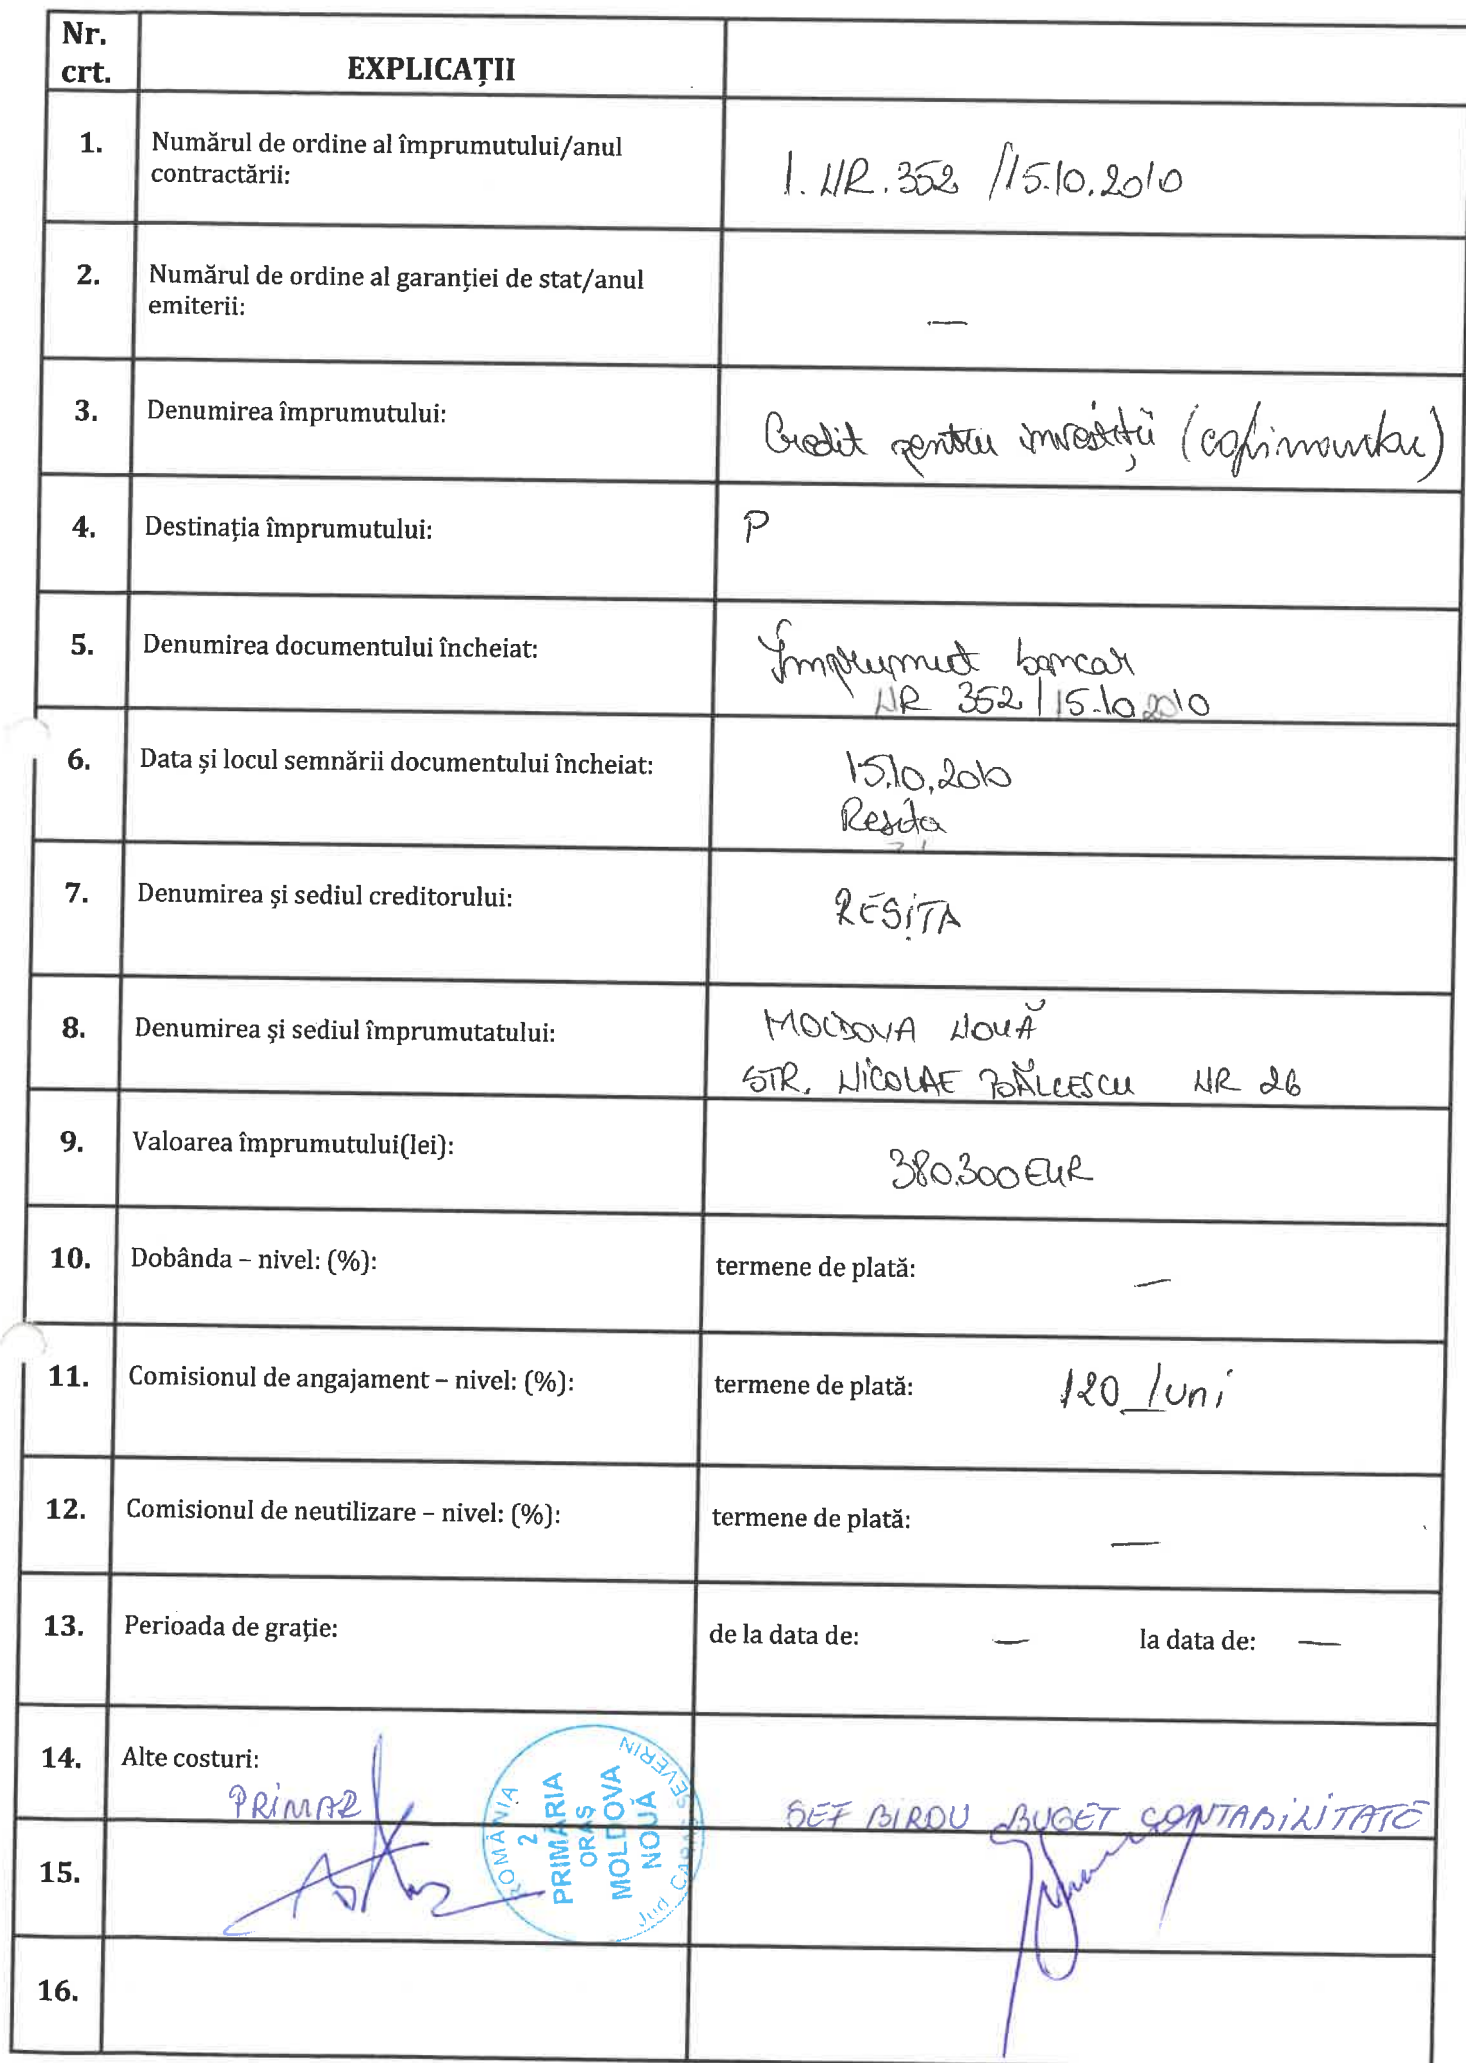 Nr.
crt.
EXPLICAȚII
1.
Numărul de ordine al împrumutului/anul
contractării:
1. NR. 352 /15.10.2010
2.
Numărul de ordine al garanției de stat/anul
emiterii:
—
3.
Denumirea împrumutului:
Credit pentru investiții (cofinanțare)
4.
Destinația împrumutului:
P
5.
Denumirea documentului încheiat:
Împrumut bancar
NR 352 / 15.10.2010
6.
Data și locul semnării documentului încheiat:
15.10.2010
Reșița
7.
Denumirea și sediul creditorului:
REȘIȚA
8.
Denumirea și sediul împrumutatului:
MOLDOVA NOUĂ
STR. NICOLAE BĂLCESCU NR 26
9.
Valoarea împrumutului(lei):
380.300 EUR
10.
Dobânda – nivel: (%):
termene de plată: —
11.
Comisionul de angajament – nivel: (%):
termene de plată: 120 luni
12.
Comisionul de neutilizare – nivel: (%):
termene de plată: —
13.
Perioada de grație:
de la data de: — la data de: —
14.
Alte costuri:
PRIMAR
ROMÂNIA
2
PRIMĂRIA
ORAȘ
MOLDOVA
NOUĂ
Jud CARAȘ SEVERIN
SEF BIROU BUGET CONTABILITATE
15.
16.